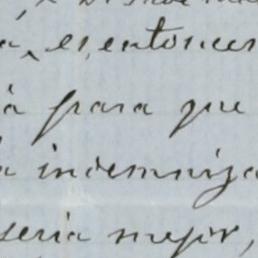 a, es, entonces
à para que
a indemniza
seria mejor,